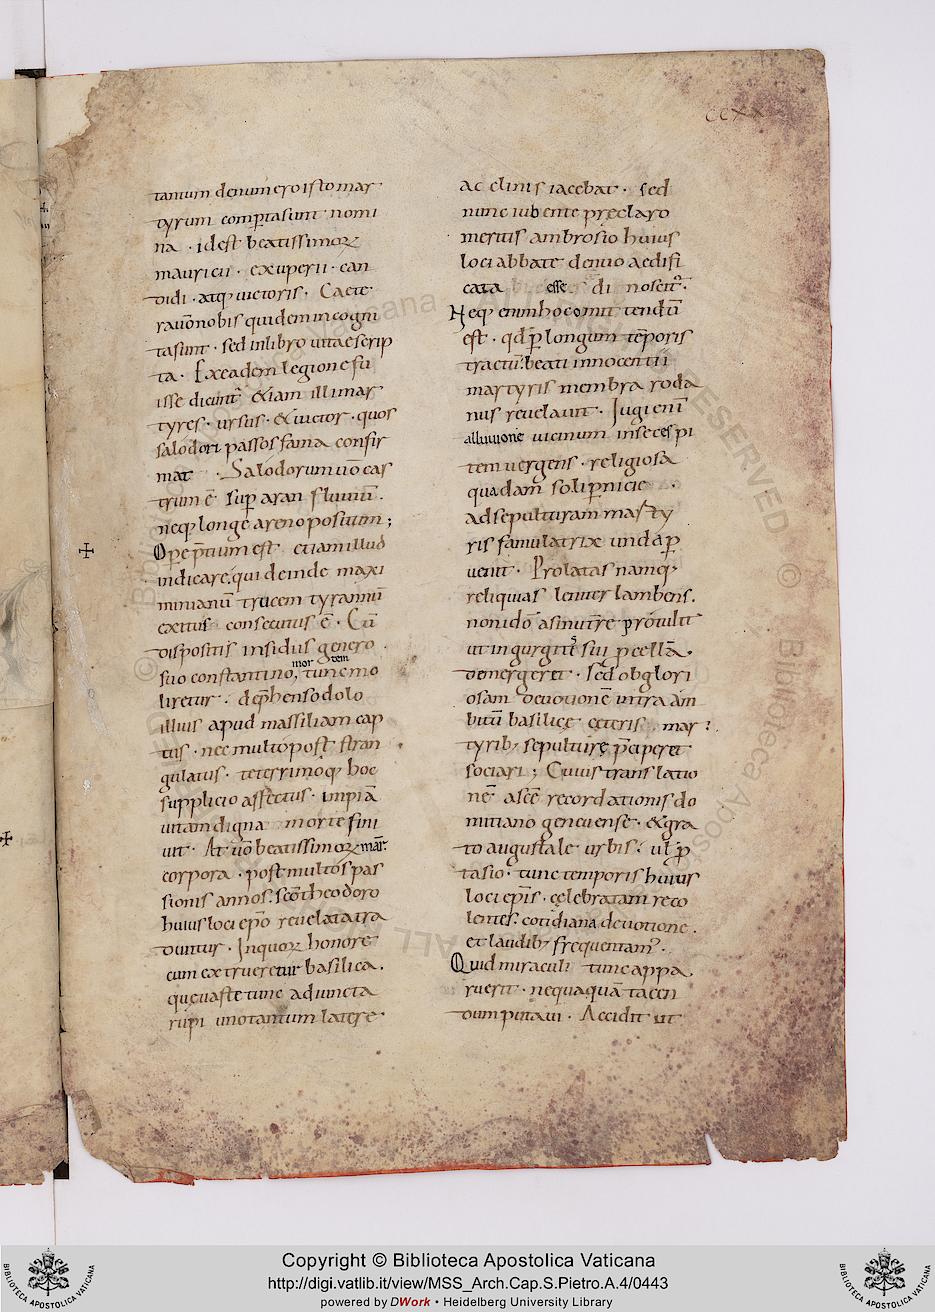 CCXX
tantum de numero isto mar
tyrum comꝑta sunt nomi
na · id est beatissimoꝝ
mauricii · exuperii · can
didi · atq; victoris · Caete
ra uō nobis quidem incogni
ta sunt · sed in libro vitae scrip
ta · Ex eadem legione fu
isse dicunt̃ &iam illi mar
tyres · ursus · & victor · quos
salodori passos fama confir
mat · Salodorum uō cas
trum ē sup̱ aran fluuiū.
neq; longe a reno positum ;
Opep̄tium est etiam illud
indicare. qui deinde maxi
mianū trucem tyrannū
exitus consecutus ē · Cū
dispositis insidiis genero
suo constantino, tunc mo
mor tem
liretur · dep̄henso dolo
illius apud massiliam cap
tus · nec multo post stran
gulatus · teterrimoq; hoc
supplicio affectus · impiā
uitam digna morte fini
uit · At uō beatissimoꝝ mār̄
corpora · post multos pas
sionis annos. scō theodoro
huius loci ep̄o reuelata tra
duntur · In quoꝝ honorē
cum extrueretur basilica.
quę uaste tunc adiuncta
rupi uno tantum latere
acclinis iacebat · sed
nunc iubente preclaro
meritis ambrosio huius
loci abbate denuo aedifi
cata esse di noscit̃ ·
Neq; enim hoc omittendū
est · qd̄ ꝑ longum tēporis
tractū. beati innocentii
martyris membra roda
nus reuelauit · Iugi enī
alluuione uicinum in se cespi
tem uergens · religiosa
quadam soli ꝑnicie
ad sepulturam marty
ris famulatrix unda ꝑ
uenit · Prolatas namq;
reliquias leniter lambens.
non idō asinu tr̄re protulit
ut in gurgitē sui ꝓcellā
demergeret · sed ob glori
osam deuotionē intra am
bitū basilicę cęteris mar
tyrib; sepulturę p̄ciperet
sociari ; Cuius translatio
nē a scē recordationis do
mitiano geneuense · & gra
to augustale urbis · ul ꝓ
tasio · tunc temporis huius
loci ep̄is · celebratam reco
lentes. cotidiana deuotione.
et laudib; frequentam̃ ·
Quid miraculi tunc appa
ruerit · nequaquā tacen
dum putaui · Accidit ut
Copyright © Biblioteca Apostolica Vaticana
http://digi.vatlib.it/view/MSS_Arch.Cap.S.Pietro.A.4/0443
powered by DWork • Heidelberg University Library